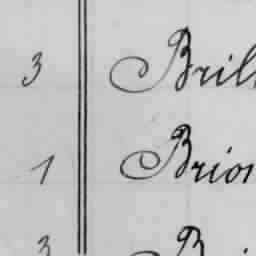 3 Bril
1 Brion
3